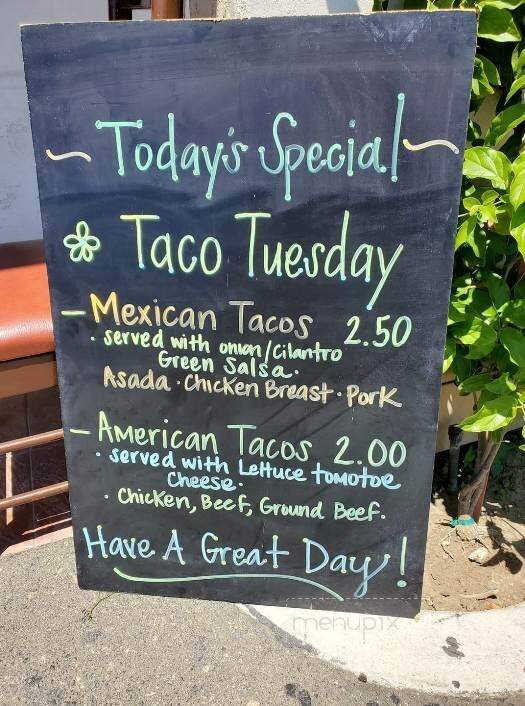 ~ Today's Special ~
Taco Tuesday
- Mexican Tacos 2.50
· served with onion/cilantro
Green Salsa.
Asada · Chicken Breast · Pork
- American Tacos 2.00
· served with Lettuce tomotoe
Cheese.
· Chicken, Beef, Ground Beef.
Have A Great Day!
menupix